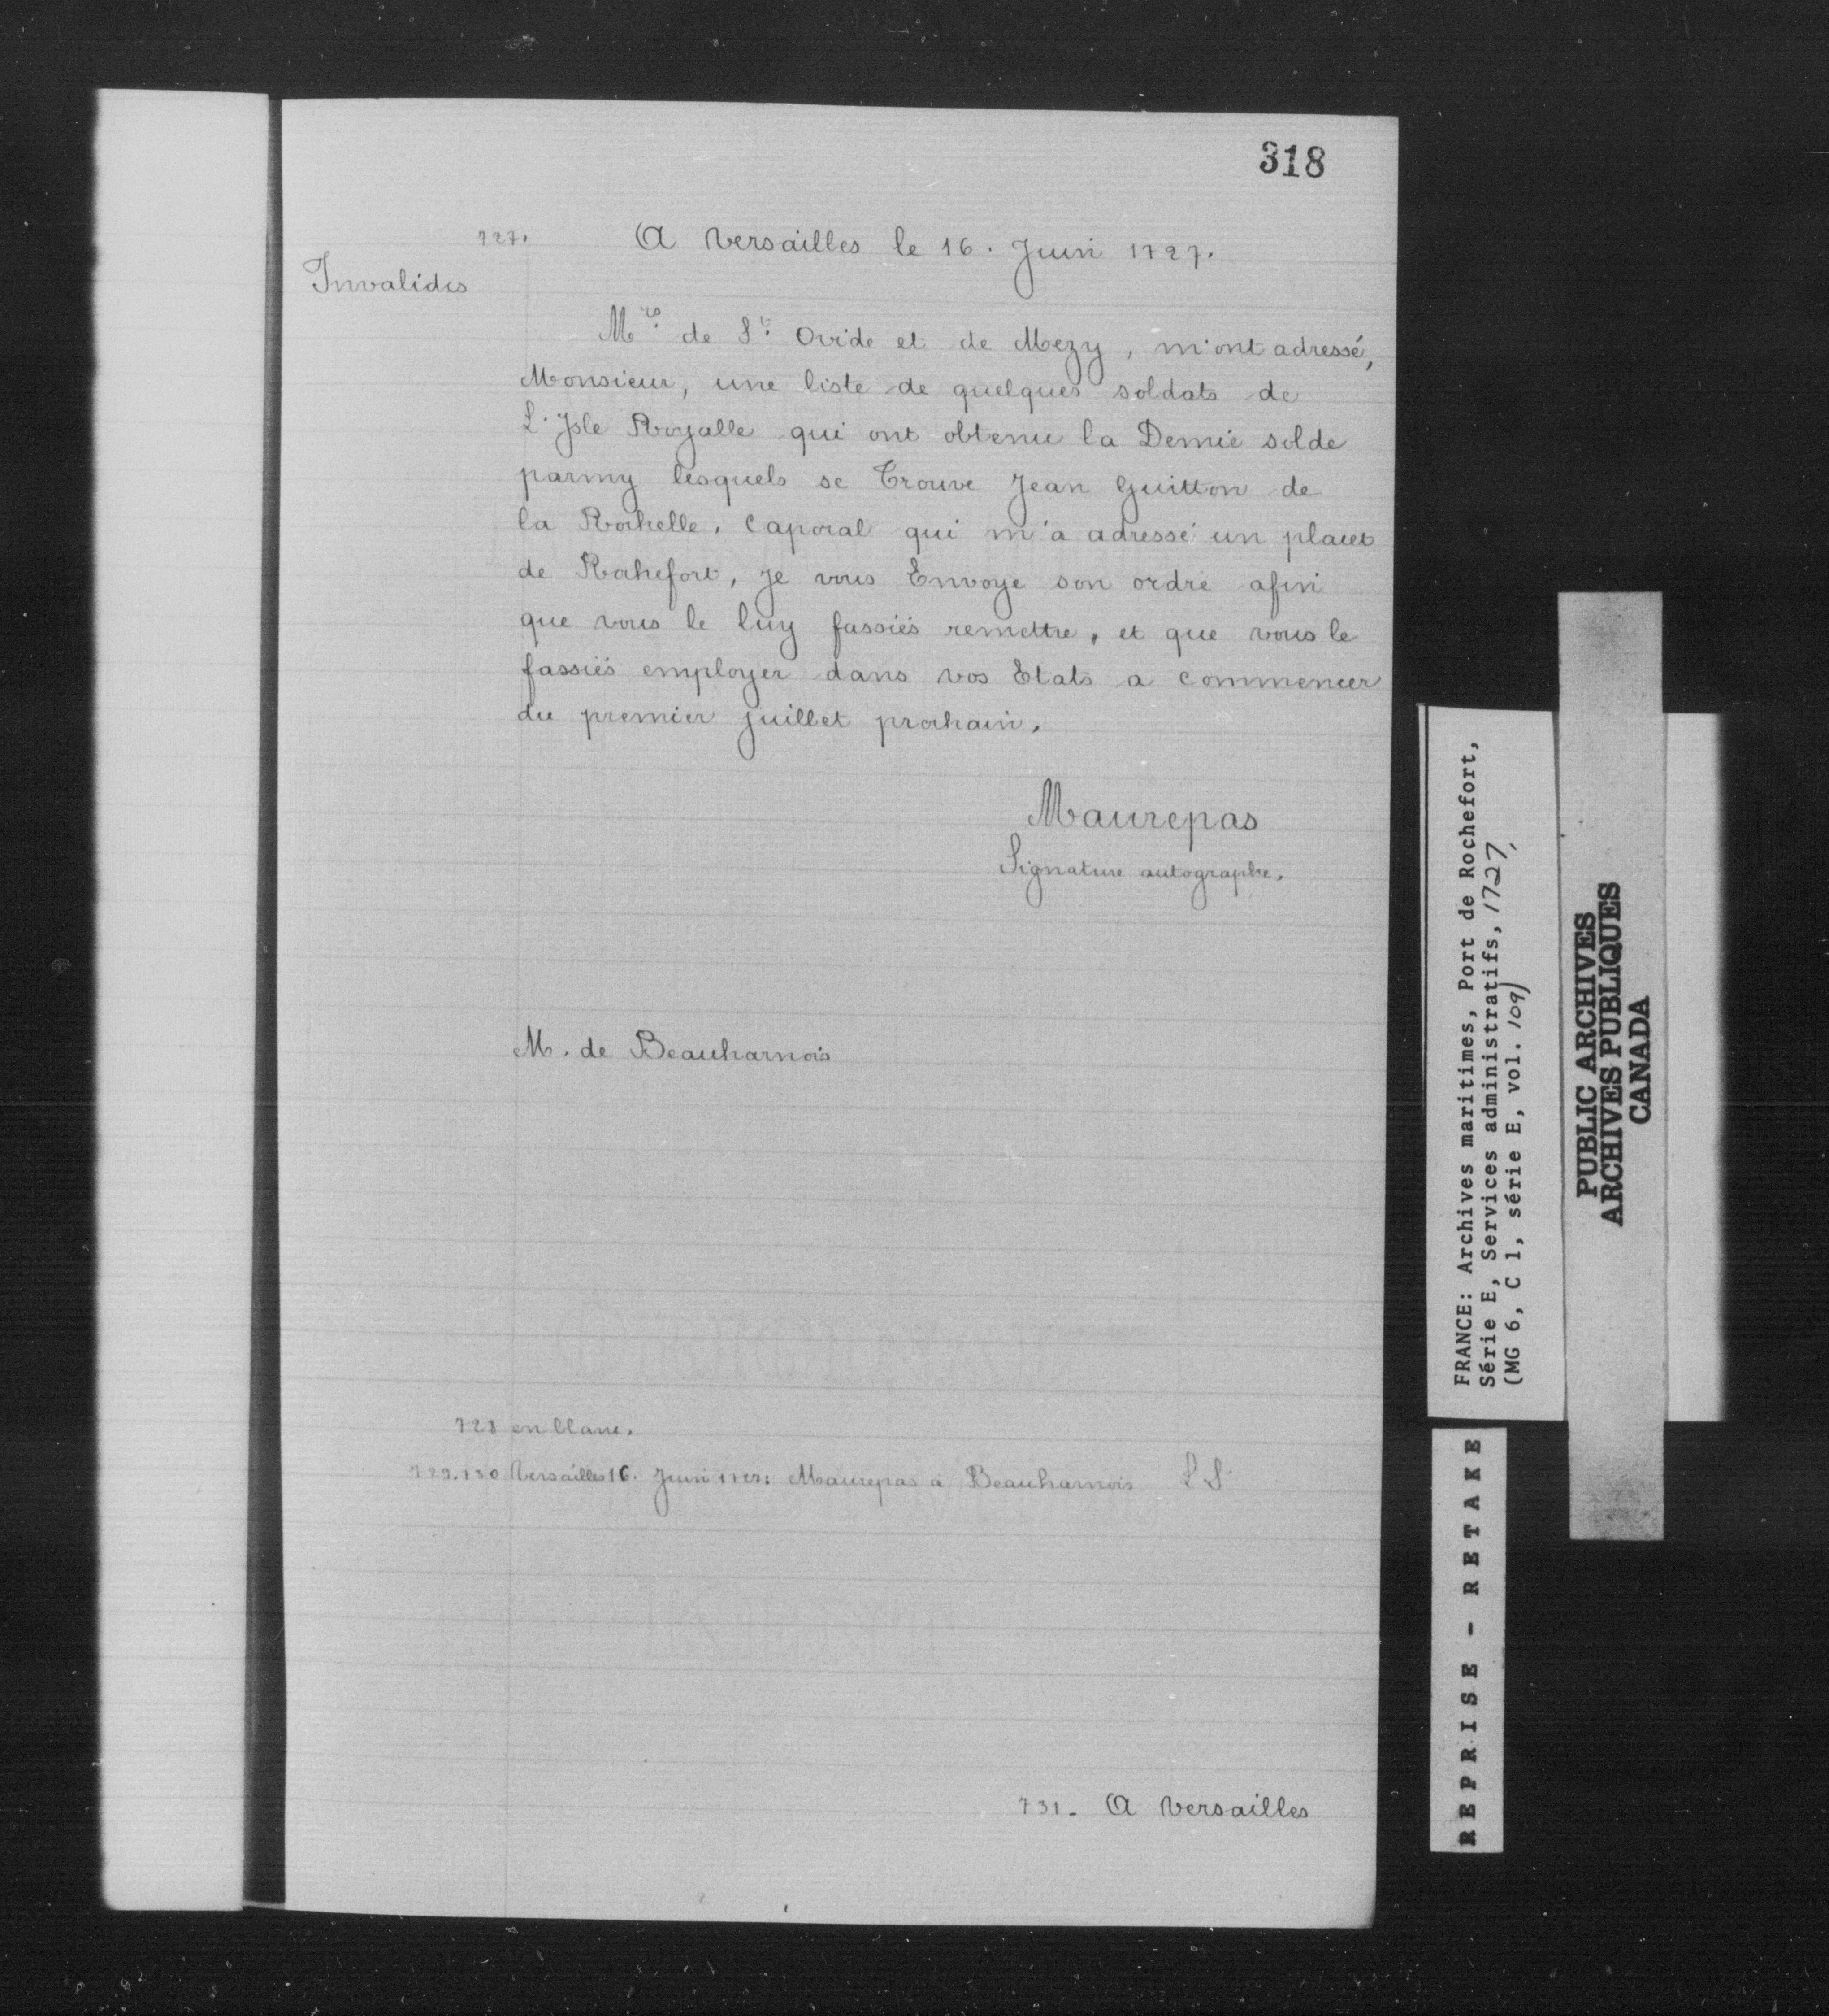 318
727. A Versailles le 16. Juin 1727.
Invalides
Mrs. de St. Ovide et de Mezy, m'ont adressé,
Monsieur, une liste de quelques soldats de
L'Isle Royalle qui ont obtenu la Demie solde
parmy lesquels se Trouve Jean Guitton de
la Rochelle, Caporal qui m'a adressé un placet
de Rochefort, je vous Envoye son ordre afin
que vous le luy fassiés remettre, et que vous le
fassiés employer dans vos Etats a commencer
du premier juillet prochain.
Maurepas
Signature autographe.
M. de Beauharnois
728 en blanc.
729.730 Versailles 16. Juin 1727: Maurepas à Beauharnois LS
731. A Versailles
FRANCE: Archives maritimes, Port de Rochefort,
Série E, Services administratifs, 1727,
(MG 6, C 1, série E, vol. 109)
PUBLIC ARCHIVES
ARCHIVES PUBLIQUES
CANADA
REPRISE - RETAKE